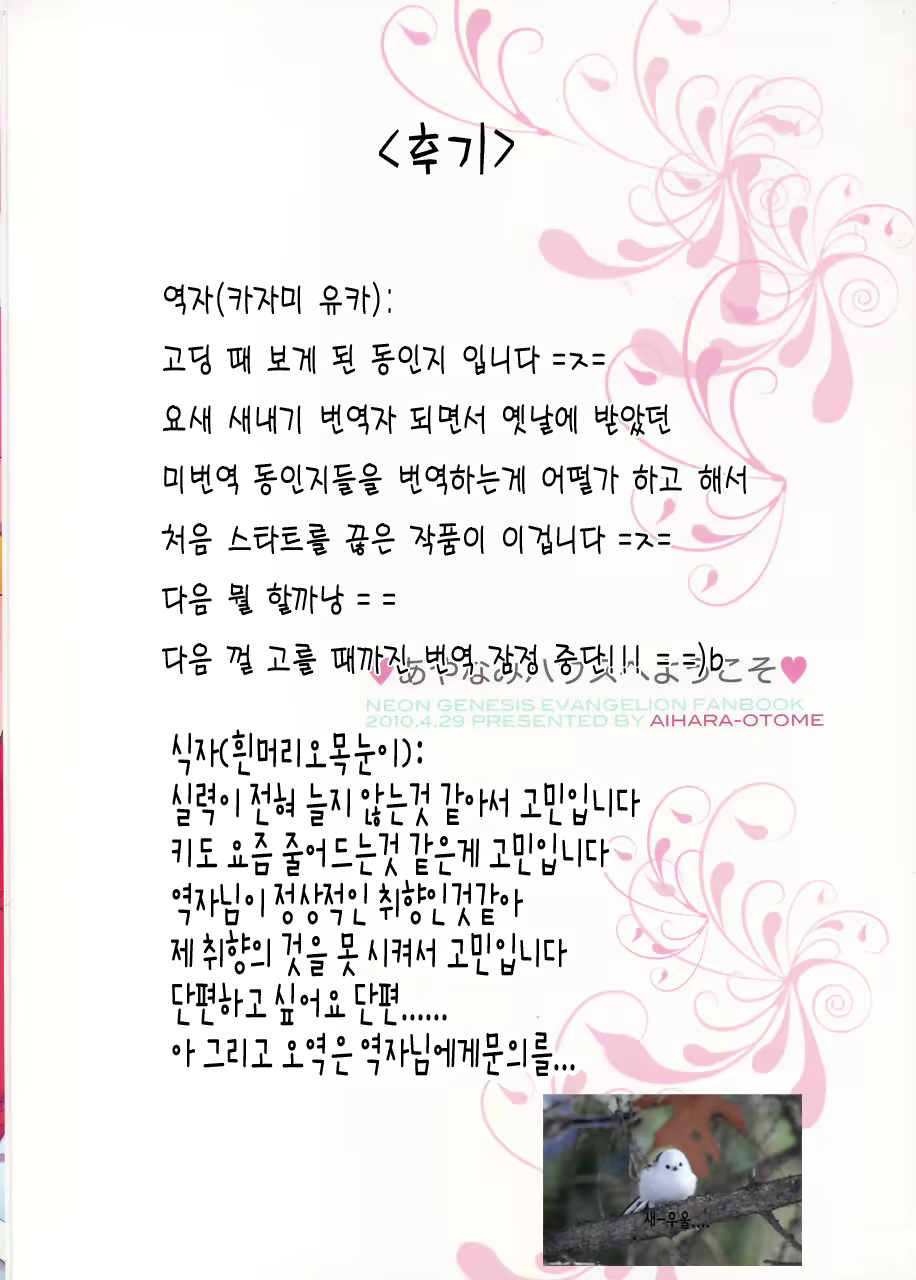 <후기>
역자(카자미 유카):
고딩 때 보게 된 동인지 입니다 =ㅈ=
요새 새내기 번역자 되면서 옛날에 받았던
미번역 동인지들을 번역하는게 어떨가 하고 해서
처음 스타트를 끊은 작품이 이겁니다 =ㅈ=
다음 뭘 할까낭 = =
다음 껄 고를 때까진 번역 잠정 중단!!! = =)b
♥あやなみハウスへようこそ♥
NEON GENESIS EVANGELION FANBOOK
2010.4.29 PRESENTED BY AIHARA-OTOME
식자(흰머리오목눈이):
실력이 전혀 늘지 않는것 같아서 고민입니다
키도 요즘 줄어드는것 같은게 고민입니다
역자님이 정상적인 취향인것같아
제 취향의 것을 못 시켜서 고민입니다
단편하고 싶어요 단편......
아 그리고 오역은 역자님에게문의를...
새-우울....